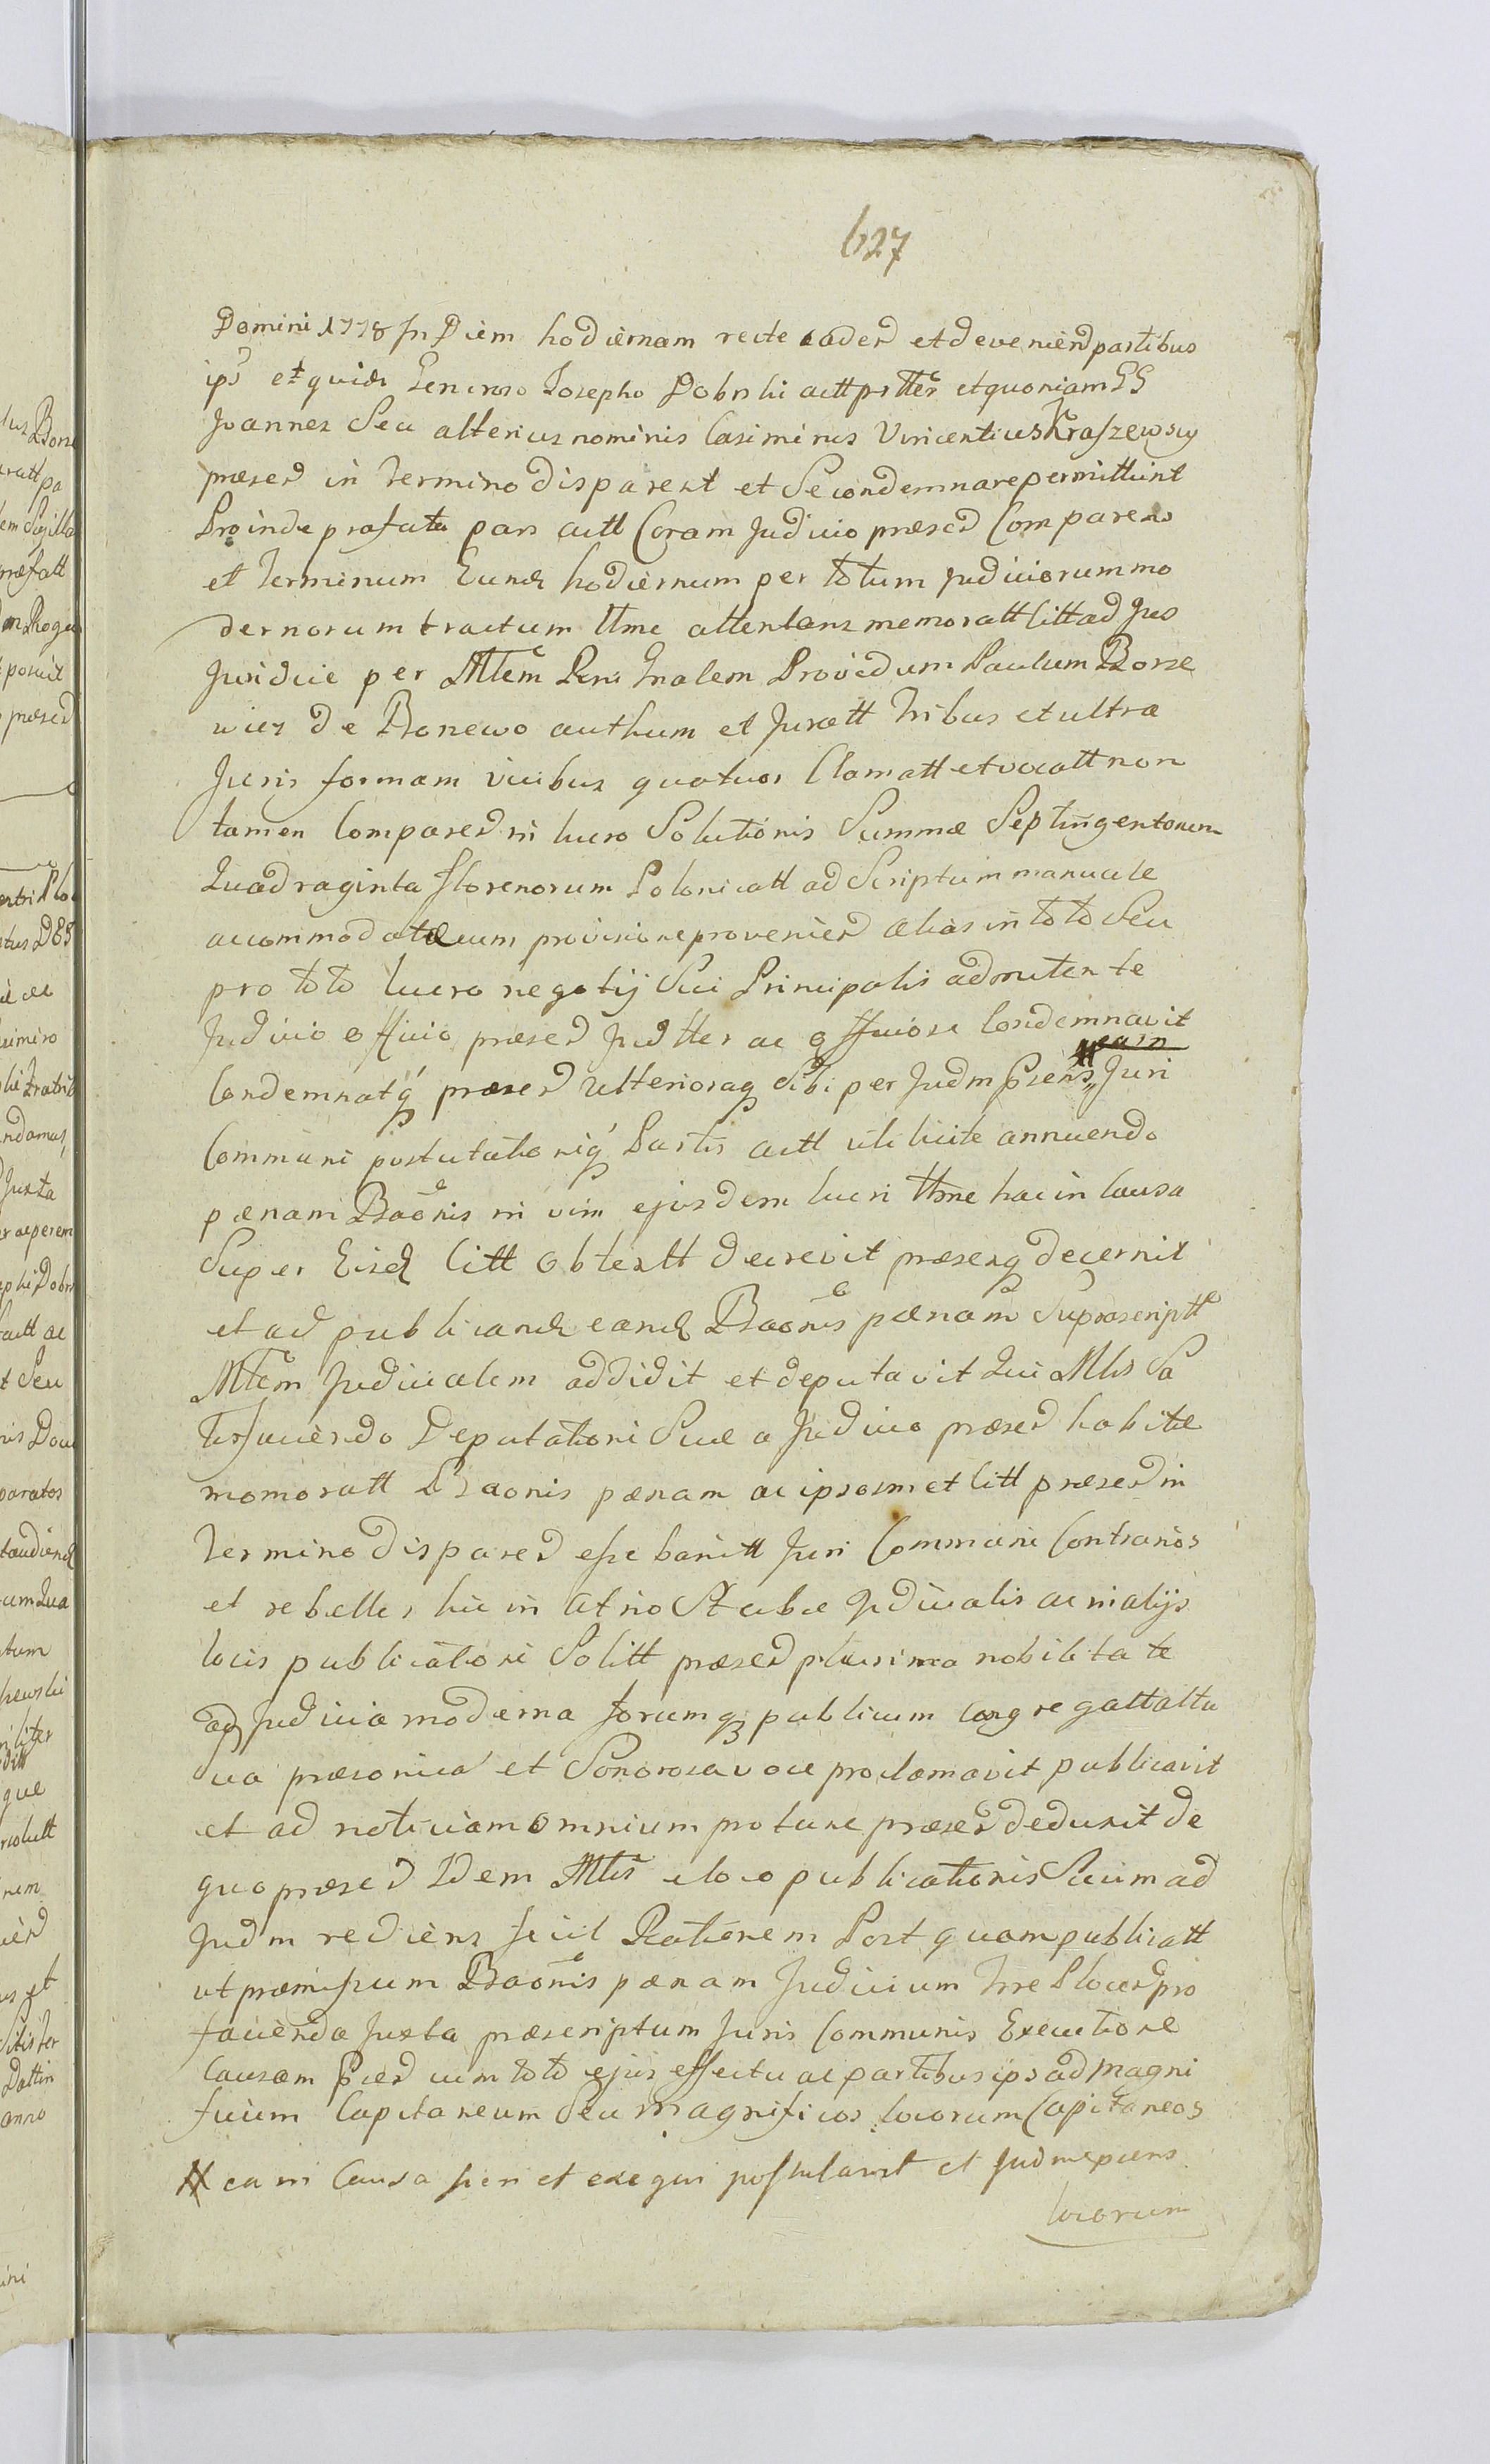 627
Domini 1778 In Diem hodiernam recte caden et devenien partibus
ips et quide Generoso Josepho Dobrski actt prtter et quoniam GG
Joannes Seu alterius nominis Casimirus Vincentius Kraszewscy
præsen in Termino disparent et Se condemnare permittunt
Proinde præfata pars actt Coram Judicio præsen Comparens
et Terminum Eund hodiernum per totum judiciorum mo
dernorum tractum ttme attentans memoratt Citt ad Jus
Juridice per Mltem Rni Gnalem Providum Paulum Borze
wicz de Bonewo authum et Juratt Tribus et ultra
Juris formam vicibus quatuor Clamatt et vocatt non
tamen Comparen in lucro Solutionis Summæ Septingentorum
Quadraginta florenorum Polonicatt ad Scriptum manuale
accommodatæ cum provisione provenien alias in toto Seu
pro toto lucro negotij Sui Principalis admitente
Judicio officio præsen Judtter ac officiose Condemnavit
Condemnatq præsen ulterioraq Sibi per Judm Præns # Juri
Communi postulationiq Partis actt uti licite annuendo
pænam Baōnis in vim ejusdem lucri ttme hac in Causa
Super Eisd Citt obtentt decrevit præsensq decernit
et ad publicand eand Baōnis pænam Suprascriptt
Mltem Judicialem addidit et deputavit Qui Mlts Sa
tisfaciendo Deputationi Suæ a Judicio præsen habitæ
memoratt Baonis pænam ac ipsosmet Citt præsen in
Termino disparen esse banitt Juri Communi Contrarios
et rebelles hic in Atrio Stubæ Judicialis ac in alijs
locis publicatione Solitt præsen plurima nobilitate
ad Judicia moderna forumq publicum congregatt altu
ua præconica et Sonorosa voce proclamavit publicavit
et ad noticiam omnium pro tunc præsen deduxit de
quo præsen Idem Mlts e loco publicationis Suum ad
Judm rediens fecit Relationem Post quam publicatt
ut præmissum Baōnis pænam Judicium Trre Plocen pro
facienda Juxta præscriptum Juris Communis Executione
Causam Præsen cum toto ejus effectu ac partibus ips ad Magni
ficum Capitaneum Seu Magnificos locorum Capitaneos
# ea in Causa fieri et exequi postulavit et Judm præns
locorum